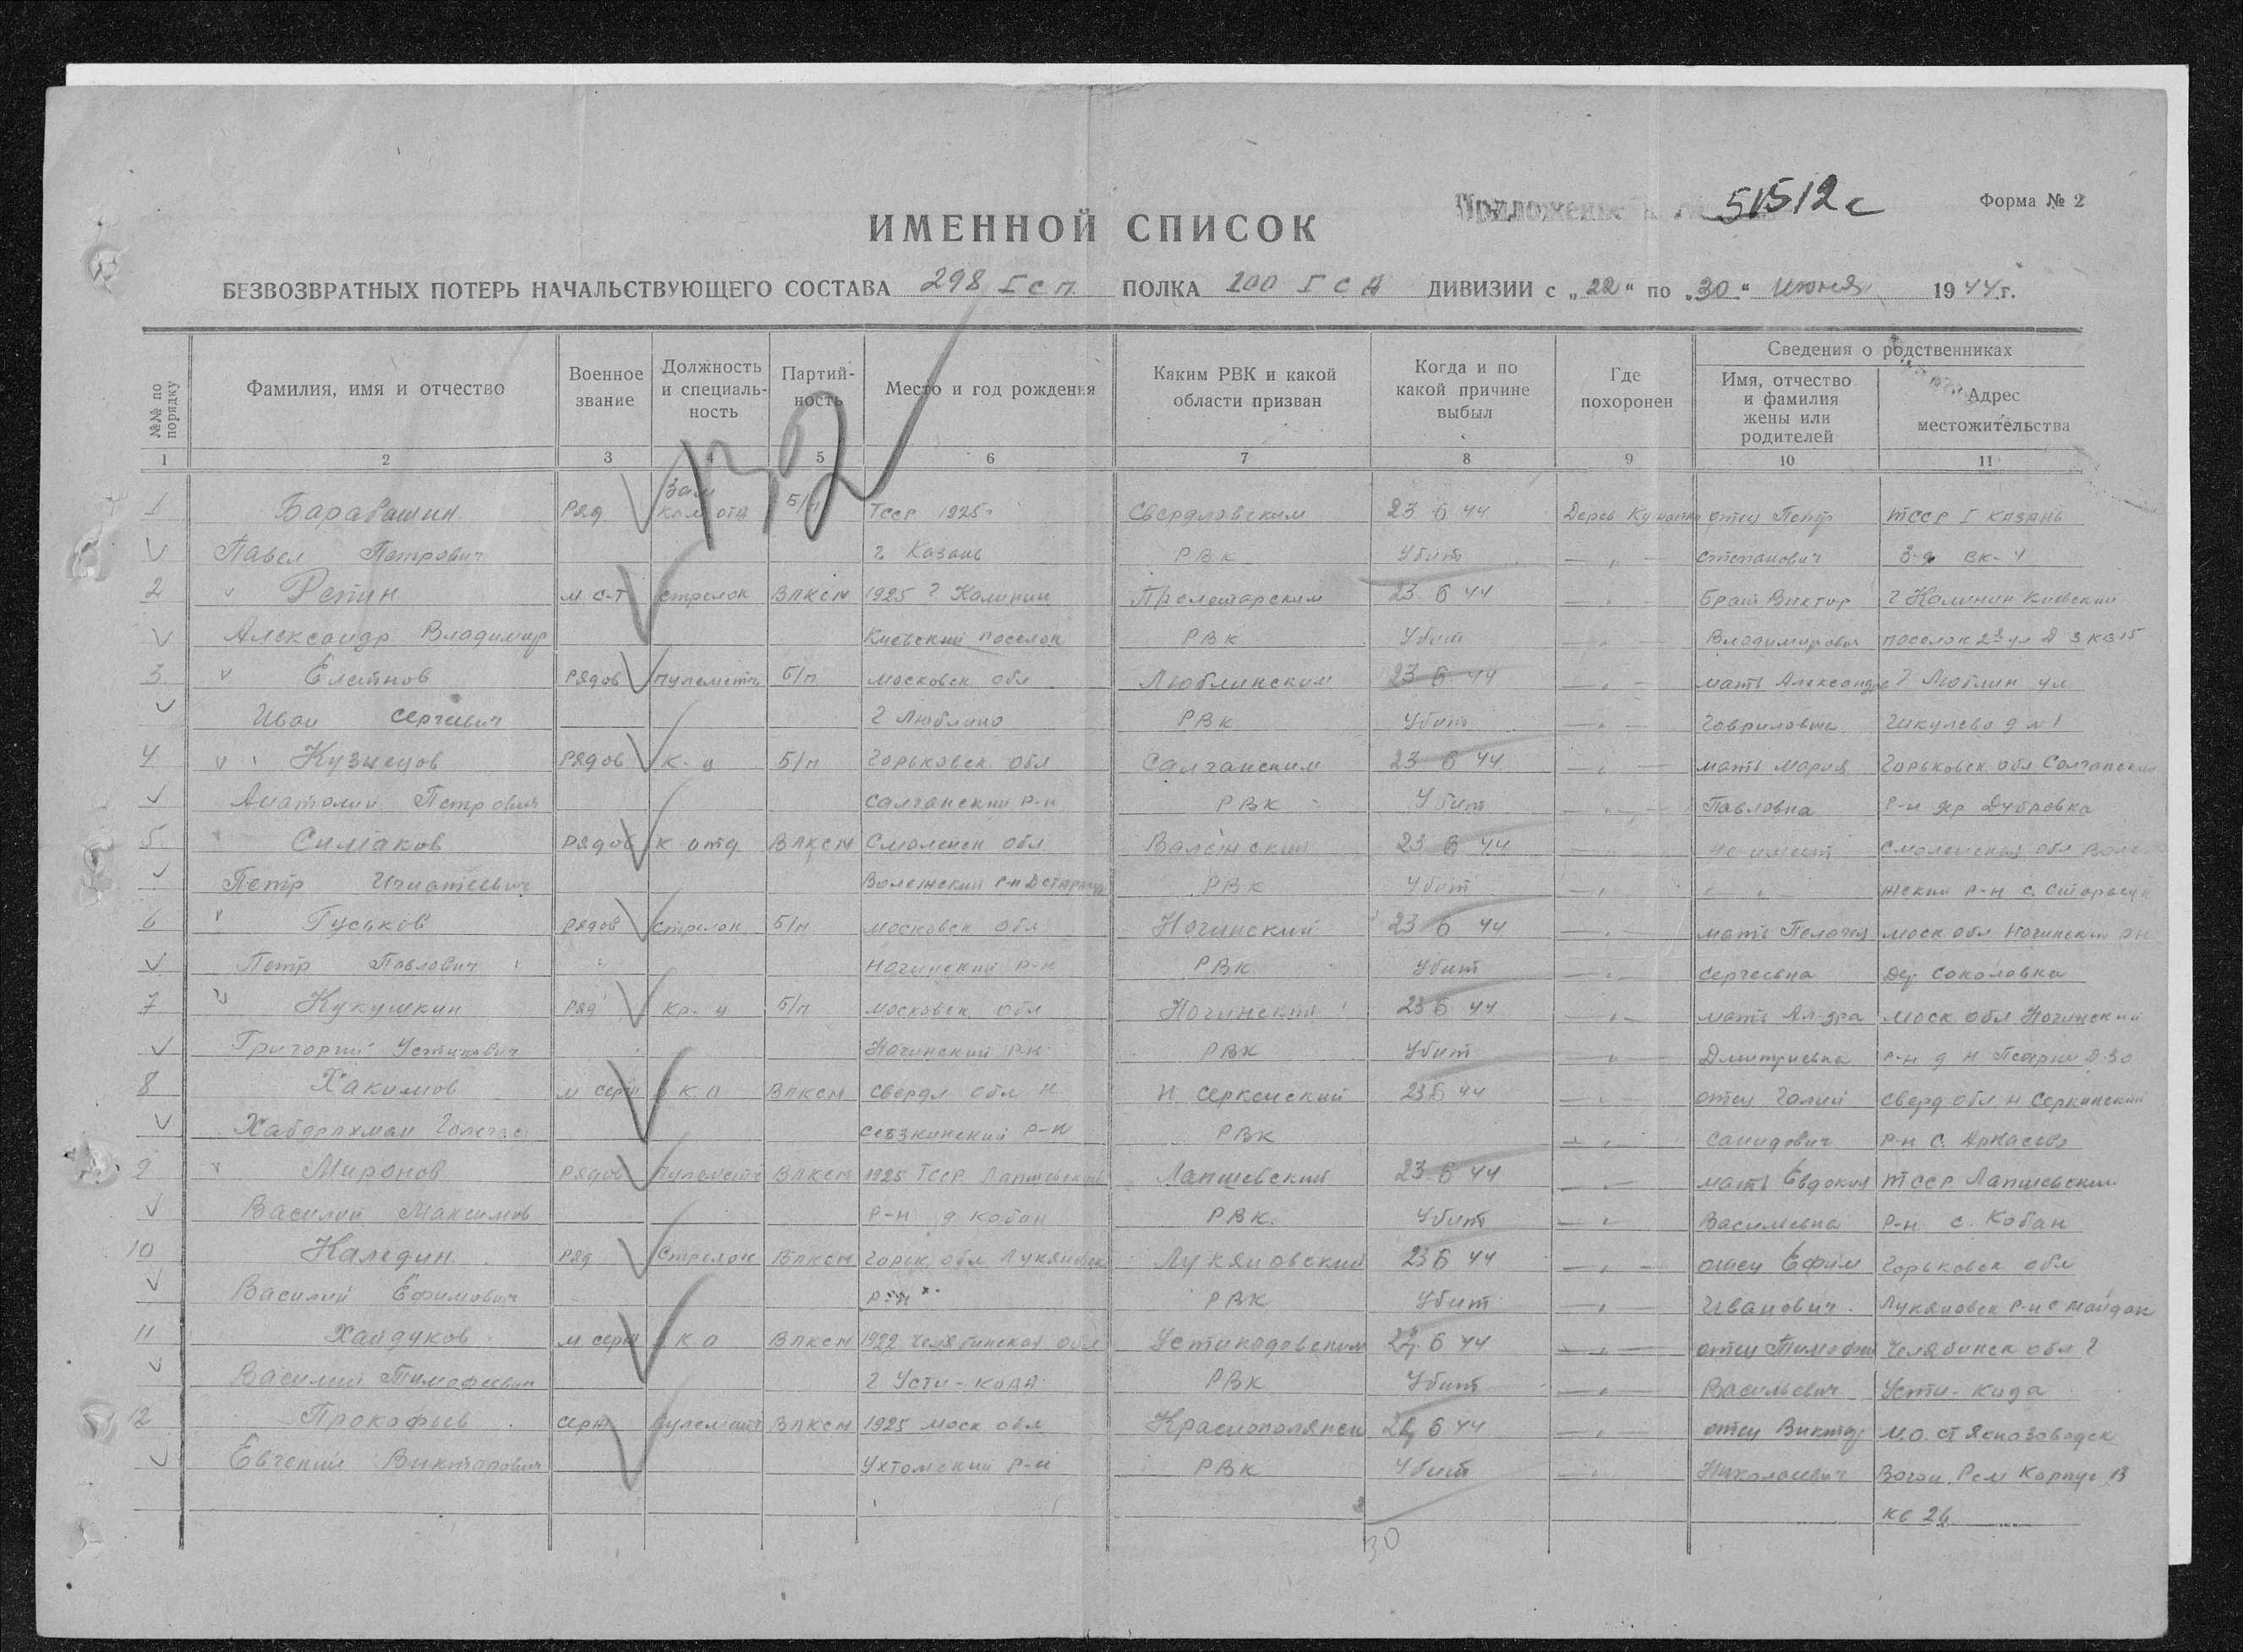 Приложение к 51512с
Форма № 2
ИМЕННОЙ СПИСОК
БЕЗВОЗВРАТНЫХ ПОТЕРЬ НАЧАЛЬСТВУЮЩЕГО СОСТАВА 298 Гсп ПОЛКА 100 Г С Д ДИВИЗИИ с „22" по „30" июня 1944 г.
№№ по порядку Фамилия, имя и отчество Военное звание Должность и специальность Партийность Место и год рождения Каким РВК и какой области призван Когда и по какой причине выбыл Где похоронен Сведения о родственниках
Имя, отчество и фамилия жены или родителей Адрес местожительства
1 2 3 4 5 6 7 8 9 10 11
1 Барабашин Ряд Зам ком отд Б/п Тсср 1925г Свердловским 23 6 44 Дерев отец Петр ТССР Г КАЗАНЬ
Павел Петрович г Казань РВК Убит — „ — Степанович 3-д ВК-4
2 Репин м с-т стрелок ВЛКСМ 1925 г Калинин Пролетарским 23 6 44 — „ — Брат Виктор г Калинин Киевский
Александр Владимир Киевский поселок РВК Убит — „ — Владимирович поселок 2я ул Д 3 кв 15
3 Елатнов Рядов пулеметч Б/п Московск обл Люблинским 23 6 44 — „ — мать Александра г Люблин ул
Иван Сергеевич г Люблино РВК Убит — „ — Гавриловна д № 1
4 Кузнецов Рядов к-ц Б/п Горьковск обл Салганским 23 6 44 — „ — мать Мария Горьковск обл Салганский
Анатолий Петрович Салганский р-н РВК Убит — „ — Павловна р-н Дубровка
5 Симаков Рядов к отд ВЛКСМ Смоленск обл 23 6 44 — „ — не имеет Смоленская обл
Петр Игнатеевич р-н РВК Убит — „ — — „ — жский р-н с.
6 Гуськов Рядов Стрелок Б/п Московск обл Ногинский 23 6 44 — „ — мать Пелагея моск обл Ногинский рн
Петр Павлович Ногинский р-н РВК Убит — „ — Сергеевна Соколовка
7 Кукушкин Ряд Кр-ц Б/п Московск обл Ногинский 23 6 44 — „ — мать Ал-дра моск обл Ногинский
Григорий Устинович Ногинский р-н РВК Убит — „ — Дмитриевна р-н д Н Д 30
8 Хакимов м серж К О ВЛКСМ Свердл обл Н Н Серкенский 23 6 44 — „ — отец Галий Сверд обл Н Серкинский
Хабдрахман р-н РВК — „ — р-н С.
9 Миронов Рядов пулеметч ВЛКСМ 1925 ТССР Лапшевский Лапшевский 23 6 44 — „ — мать Евдокия ТССР Лапшевский
Василий Максимов р-н д Кобан РВК Убит — „ — Васильевна р-н с. Кобан
10 Каледин Ряд Стрелок ВЛКСМ Горьк обл Лукяновск Лукяновский 23 6 44 — „ — отец Ефим Горьковск обл
Василий Ефимович р-н РВК Убит — „ — Иванович Лукяновск р-н с Майдан
11 Хайдуков м серж К О ВЛКСМ 1922 Челябинская обл 6 44 — „ — отец Тимофей Челябинск обл г
Василий Тимофеевич г Усти-кода РВК Убит — „ — Васильевич Усти-када
12 Прокофьев серж пулеметч ВЛКСМ 1925 моск обл Краснополянск 6 44 — „ — отец Виктор М.О. ст
Евгений Викторович Ухтомский р-н РВК Убит — „ — Николаевич Вагон. Рем Корпус 13
кв 26
30